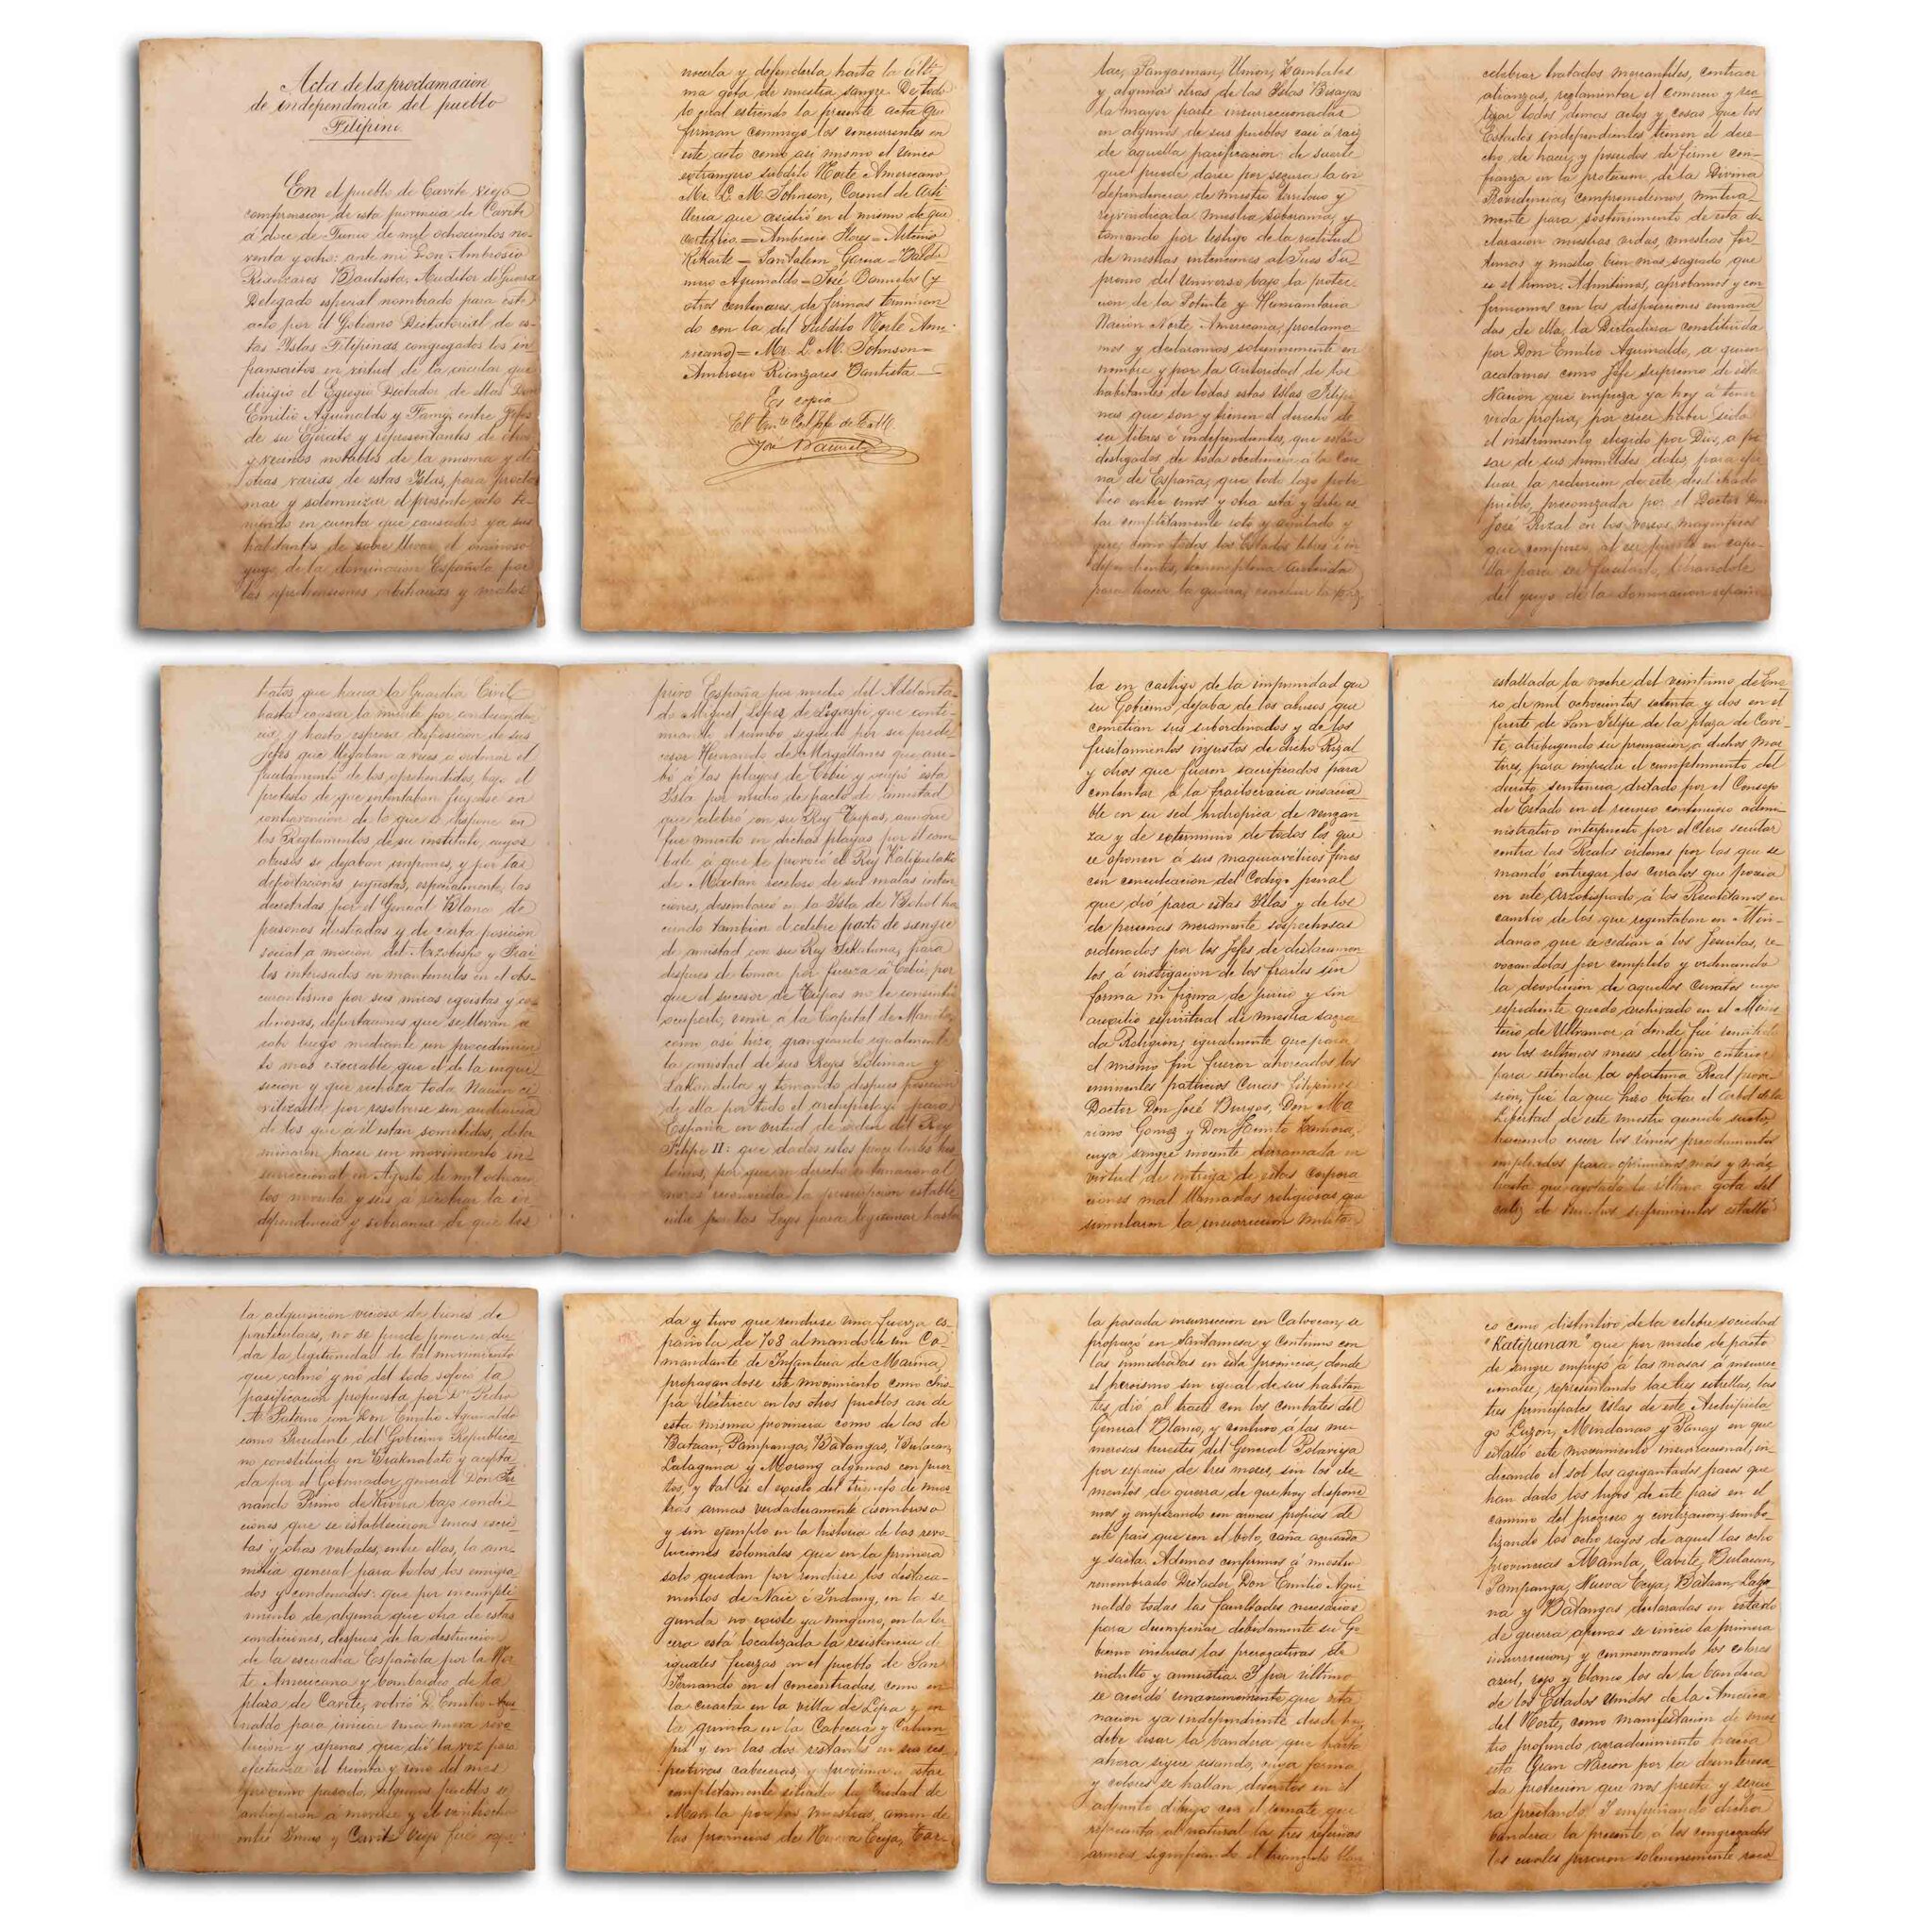 Acta de la proclamacion
de independencia del pueblo
Filipino.
En el pueblo de Cavite viejo
comprension de esta provincia de Cavite
á doce de Junio de mil ochocientos no-
venta y ocho: ante mi Don Ambrosio
Rianzares Bautista, Auditor de Guerra
Delegado especial nombrado para este
acto por el Gobierno Dictatorial de es-
tas Islas Filipinas, congregados los in
franscritos en virtud de la circular que
dirigio el Egregio Dictador de ellas Don
Emilio Aguinaldo y Famy, entre Jefes
de su Ejército y representantes de otros
y vecinos notables de la misma y de
otras varias de estas Islas, para procla
mar y solemnizar el presente acto te-
niendo en cuenta que cansados ya sus
habitantes de sobre llevar el ominoso
yugo de la dominacion Española por
las aprehensiones arbitrarias y malos
nocerla y defenderla hasta la últi
ma gota de nuestra sangre. De todo
lo cual estiendo la presente acta que
firman conmigo los concurrentes en
este acto como asi mismo el unico
extrangero subdito Norte Americano
Mr. L. M. Johnson, Coronel de Arti
lleria que asistió en el mismo de que
certifico. = Ambrocio Flores = Artemio
Rikarte = Pantaleon Garcia = Baldo
mero Aguinaldo = José Bañuelos (y
otros centenares de firmas terminan
do con la del Subdito Norte Ame-
ricano) = Mr. L. M. Johnson =
Ambrosio Rianzares Bautista
Es copia
El Tente Corl Jefe de
José Bañuelos
lac, Pangasinan, Union, Zambales
y algunas otras de las Islas Bisayas
la mayor parte insurreccionadas
en algunos de sus pueblos casi á raiz
de aquella pacificacion: de suerte
que puede darse por segura la in
dependencia de nuestro territorio y
reyvindicada nuestra soberania, y
tomando por testigo de la rectitud
de nuestras intenciones al Juez Su
premo del Universo bajo la protec-
cion de la Potente y Humanitaria
Nacion Norte Americana, proclama
mos y declaramos solemnemente en
nombre y por la Autoridad de los
habitantes de todas estas Islas Filipi
nas que son y tienen el derecho de
ser libres é independientes, que están
desligados de toda obediencia á la Coro
na de España, que todo lazo poli
tico entre unos y otra está y debe es
tar completamente roto y anulado y
que, como todos los Estados libres é in
dependientes, tienen plena autoridad
para hacer la guerra, concluir la paz
celebrar tratados mercantiles, contraer
alianzas, reglamentar el comercio y rea
lizar todos demas actos y cosas que los
Estados independientes tienen el dere-
cho de hacer, y poseidos de firme con-
fianza en la proteccion de la Divina
Providencia, comprendemos mutua
mente para sostenimiento de esta de
claracion nuestras vidas, nuestras for-
tunas y nuestro bien mas sagrado que
es el honor. Admitimos, aprobamos y con
firmamos con las disposiciones emana
das de ella, la Dictadura constituida
por Don Emilio Aguinaldo, a quien
acatamos como Jefe supremo de esta
Nacion que empieza ya hoy á tener
vida propia, por creer haber sido
el instrumento elegido por Dios, a pe
sar de sus humildes dotes, para efec
tuar la redencion de este desdichado
pueblo, preconizada por el Doctor Don
José Rizal en los versos magnificos
que compuso al ser puesto en capi-
lla para ser fusilado, librandole
del yugo de la dominacion españo
tratos que hacia la Guardia Civil
hasta causar la muerte por condescenden
cia y hasta expresa disposicion de sus
Jefes que llegaban a veces a ordenar el
fusilamiento de los aprehendidos, bajo el
pretesto de que intentaban fugarse en
contravencion de lo que se dispone en
los Reglamentos de su instituto, cuyos
abusos se dejaban impunes, y por las
deportaciones injustas, especialmente, las
decretadas por el General Blanco de
personas ilustradas y de cierta posicion
social a mocion del Arzobispo y Frai
les interesados en mantenerlas en el obs-
curantismo por sus miras egoistas y co-
diciosas, deportaciones que se llevan a
cabo luego mediante un procedimien
to mas execrable que el de la inqui-
sicion y que rechaza toda Nacion ci
vilizada, por resolverse sin audiencia
de los que á él están sometidos, deter
minaron hacer un movimiento in-
surreccional en Agosto de mil ochocien
tos noventa y seis a recobrar la in
dependencia y soberania de que los
privo España por medio del Adelanta-
do Miguel Lopez de Legaspi, que conti-
nuando el rumbo seguido por su prede
cesor Hernando de Magallanes que arri
bó á las playas de Cebú y ocupó esta
Isla por medio de pacto de amistad
que celebró con su Rey Tupas, aunque
fue muerto en dichas playas por el com
bate á que le provocó el Rey Kalipulako
de Mactan receloso de sus malas inten
ciones, desembarcó en la Isla de Bohol ha
ciendo tambien el célebre pacto de sangre
de amistad con su Rey Sikatuna, para
despues de tomar por fuerza á Cebú, por
que el sucesor de Tupas no le consintió
ocuparla, venir a la Capital de Manila,
como asi hizo, grangeando igualmente
la amistad de sus Reyes Soliman y
Lakandula y tomando despues posesion
de ella por todo el archipielago para
España en virtud de orden del Rey
Felipe II: que dados estos precedentes his
toricos, por que en derecho internacional
no es reconocida la prescripcion estable
cida por las Leyes para legitimar hasta
la en castigo de la impunidad que
su Gobierno dejaba de los abusos que
cometian sus subordinados y de los
fusilamientos injustos de dicho Rizal
y otros que fueron sacrificados para
contentar á la frailocracia insacia
ble en su sed hidrópica de vengan
za y de exterminio de todos los que
se oponen á sus maquiavélicos fines
con conculcacion del Codigo penal
que dió para estas Islas y de los
de personas meramente sospechosas
ordenados por los Jefes de destacamen
tos á instigacion de los frailes sin
forma ni figura de juicio y sin
auxilio espiritual de nuestra sagra
da Religion; igualmente que para
el mismo fin fueron ahorcados los
eminentes patricios Curas filipinos
Doctor Don José Burgos, Don Ma
riano Gomez y Don Jacinto Zamora,
cuya sangre inocente derramada en
virtud de intriga de estas corpora
ciones mal llamadas religiosas que
simularon la insurreccion militar
estallada la noche del veintiuno de Ene-
ro de mil ochocientos setenta y dos en el
fuerte de San Felipe de la plaza de Cavi
te, atribuyendo su promocion a dichos mar
tires, para impedir el cumplimiento del
decreto sentencia dictado por el Consejo
de Estado en el recurso contencioso admi-
nistrativo interpuesto por el Clero secular
contra las Reales órdenes por las que se
mandó entregar los curatos que poseia
en este Arzobispado á los Recoletanos en
cambio de los que regentaban en Min-
danao que se cedian á los Jesuitas, re-
vocandolas por completo y ordenando
la devolucion de aquellos Curatos cuyo
espediente quedo archivado en el Minis
terio de Ultramar, á donde fué remitido
en los ultimos meses del año anterior
para estender la oportuna Real provi-
sion, fué la que hizo brotar el arbol de la
libertad de este nuestro querido suelo
haciendo crecer los inicuos procedimientos
empleados para oprimirnos más y más,
hasta que agotada la última gota del
caliz de nuestros sufrimientos estalló
la adquisicion viciosa de bienes de
particulares, no se puede poner en du
da la legitimidad de tal movimiento
que calmó y no del todo sofocó la
pacificacion propuesta por Dn Pedro
A. Paterno con Don Emilio Aguinaldo
como Presidente del Gobierno Republica
no constituido en Biaknabato y acepta-
da por el Gobernador general Don Fer
nando Primo de Rivera bajo condi-
ciones que se establecieron unas escri-
tas y otras verbales, entre ellas, la am-
nistia general para todos los emigra
dos y condenados: que por incumpli-
miento de alguna que otra de estas
condiciones, despues de la destruccion
de la escuadra Española por la Nor
te Americana y bombardeo de la
plaza de Cavite, volvió D. Emilio Agui-
naldo para iniciar una nueva revo
lucion y apenas que dió la voz para
efectuarla el treinta y uno del mes
proximo pasado, algunos pueblos se
anticiparon á moverse y el veintiocho
entre Imus y Cavite Viejo fué copa-
da y tuvo que rendirse una fuerza es-
pañola de 178 al mando de un Co-
mandante de Infanteria de Marina,
propagandose este movimiento como chis-
pa eléctrica en los otros pueblos asi de
esta misma provincia como de las de
Bataan, Pampanga, Batangas, Bulacan,
Lalaguna y Morong algunas con puer
tos, y tal es el éxito del triunfo de nues
tras armas verdaderamente asombroso
y sin ejemplo en la historia de las revo-
luciones coloniales que en la primera
solo quedan por rendirse los destaca-
mentos de Naic é Indang, en la se
gunda no existe ya ninguno, en la ter
cera está localizada la resistencia de
iguales fuerzas en el pueblo de San
Fernando en el concentradas, como en
la cuarta en la villa de Lipa y en
la quinta en la Cabecera y Calum
pit y en las dos restantes en sus res-
pectivas cabeceras, y proxima a estar
completamente sitiada la Ciudad de
Manila por las nuestras, amen de
las provincias de Nueva Ecija, Tar-
la pasada insurreccion en Caloocan, se
propagó en Santamesa y Continuo con
las inmediatas en esta provincia, donde
el heroismo sin igual de sus habitan
tes dió al traste con los combates del
General Blanco, y contuvo á las nu-
merosas huestes del General Polavieja
por espacio de tres meses, sin los ele-
mentos de guerra de que hoy dispone
mos y empezando con armas propias de
este pais que son el bolo, caña aguzada
y saeta. Ademas conferimos á nuestro
renombrado Dictador Don Emilio Agui
naldo todas las facultades necesarias
para desempeñar debidamente su Go
bierno inclusas las prerogativas de
indulto y amnistia. Y por último
se acordó unanimemente que esta
nacion ya independiente desde hoy
debe usar la bandera que hasta
ahora sigue usando, cuya forma
y colores se hallan descritos en el
adjunto dibujo con el remate que
representa al natural las tres referidas
armas significando el triangulo blan-
co como distintivo de la célebre sociedad
"Katipunan" que por medio de pacto
de sangre empujó á las masas á insurrec
cionarse; representando las tres estrellas, las
tres principales Islas de este Archipiela
go Luzon, Mindanao y Panay en que
estalló este movimiento insurreccional, in
dicando el sol los agigantados pasos que
han dado los hijos de este pais en el
camino del progreso y civilizacion, simbo-
lizando los ocho rayos de aquel las ocho
provincias Manila, Cavite, Bulacan,
Pampanga, Nueva Ecija, Bataan, Lagu
na y Batangas declaradas en estado
de guerra apenas se inicio la primera
insurreccion, y conmemorando los colores
azul, rojo y blanco los de la bandera
de los Estados Unidos de la América
del Norte, como manifestacion de nues
tro profundo agradecimiento hacia
esta Gran Nacion por la desinteresa
da proteccion que nos presta y segui
rá prestando. Y empuñando dicha
bandera la presenté á los congregados
los cuales juraron solemnemente reco-